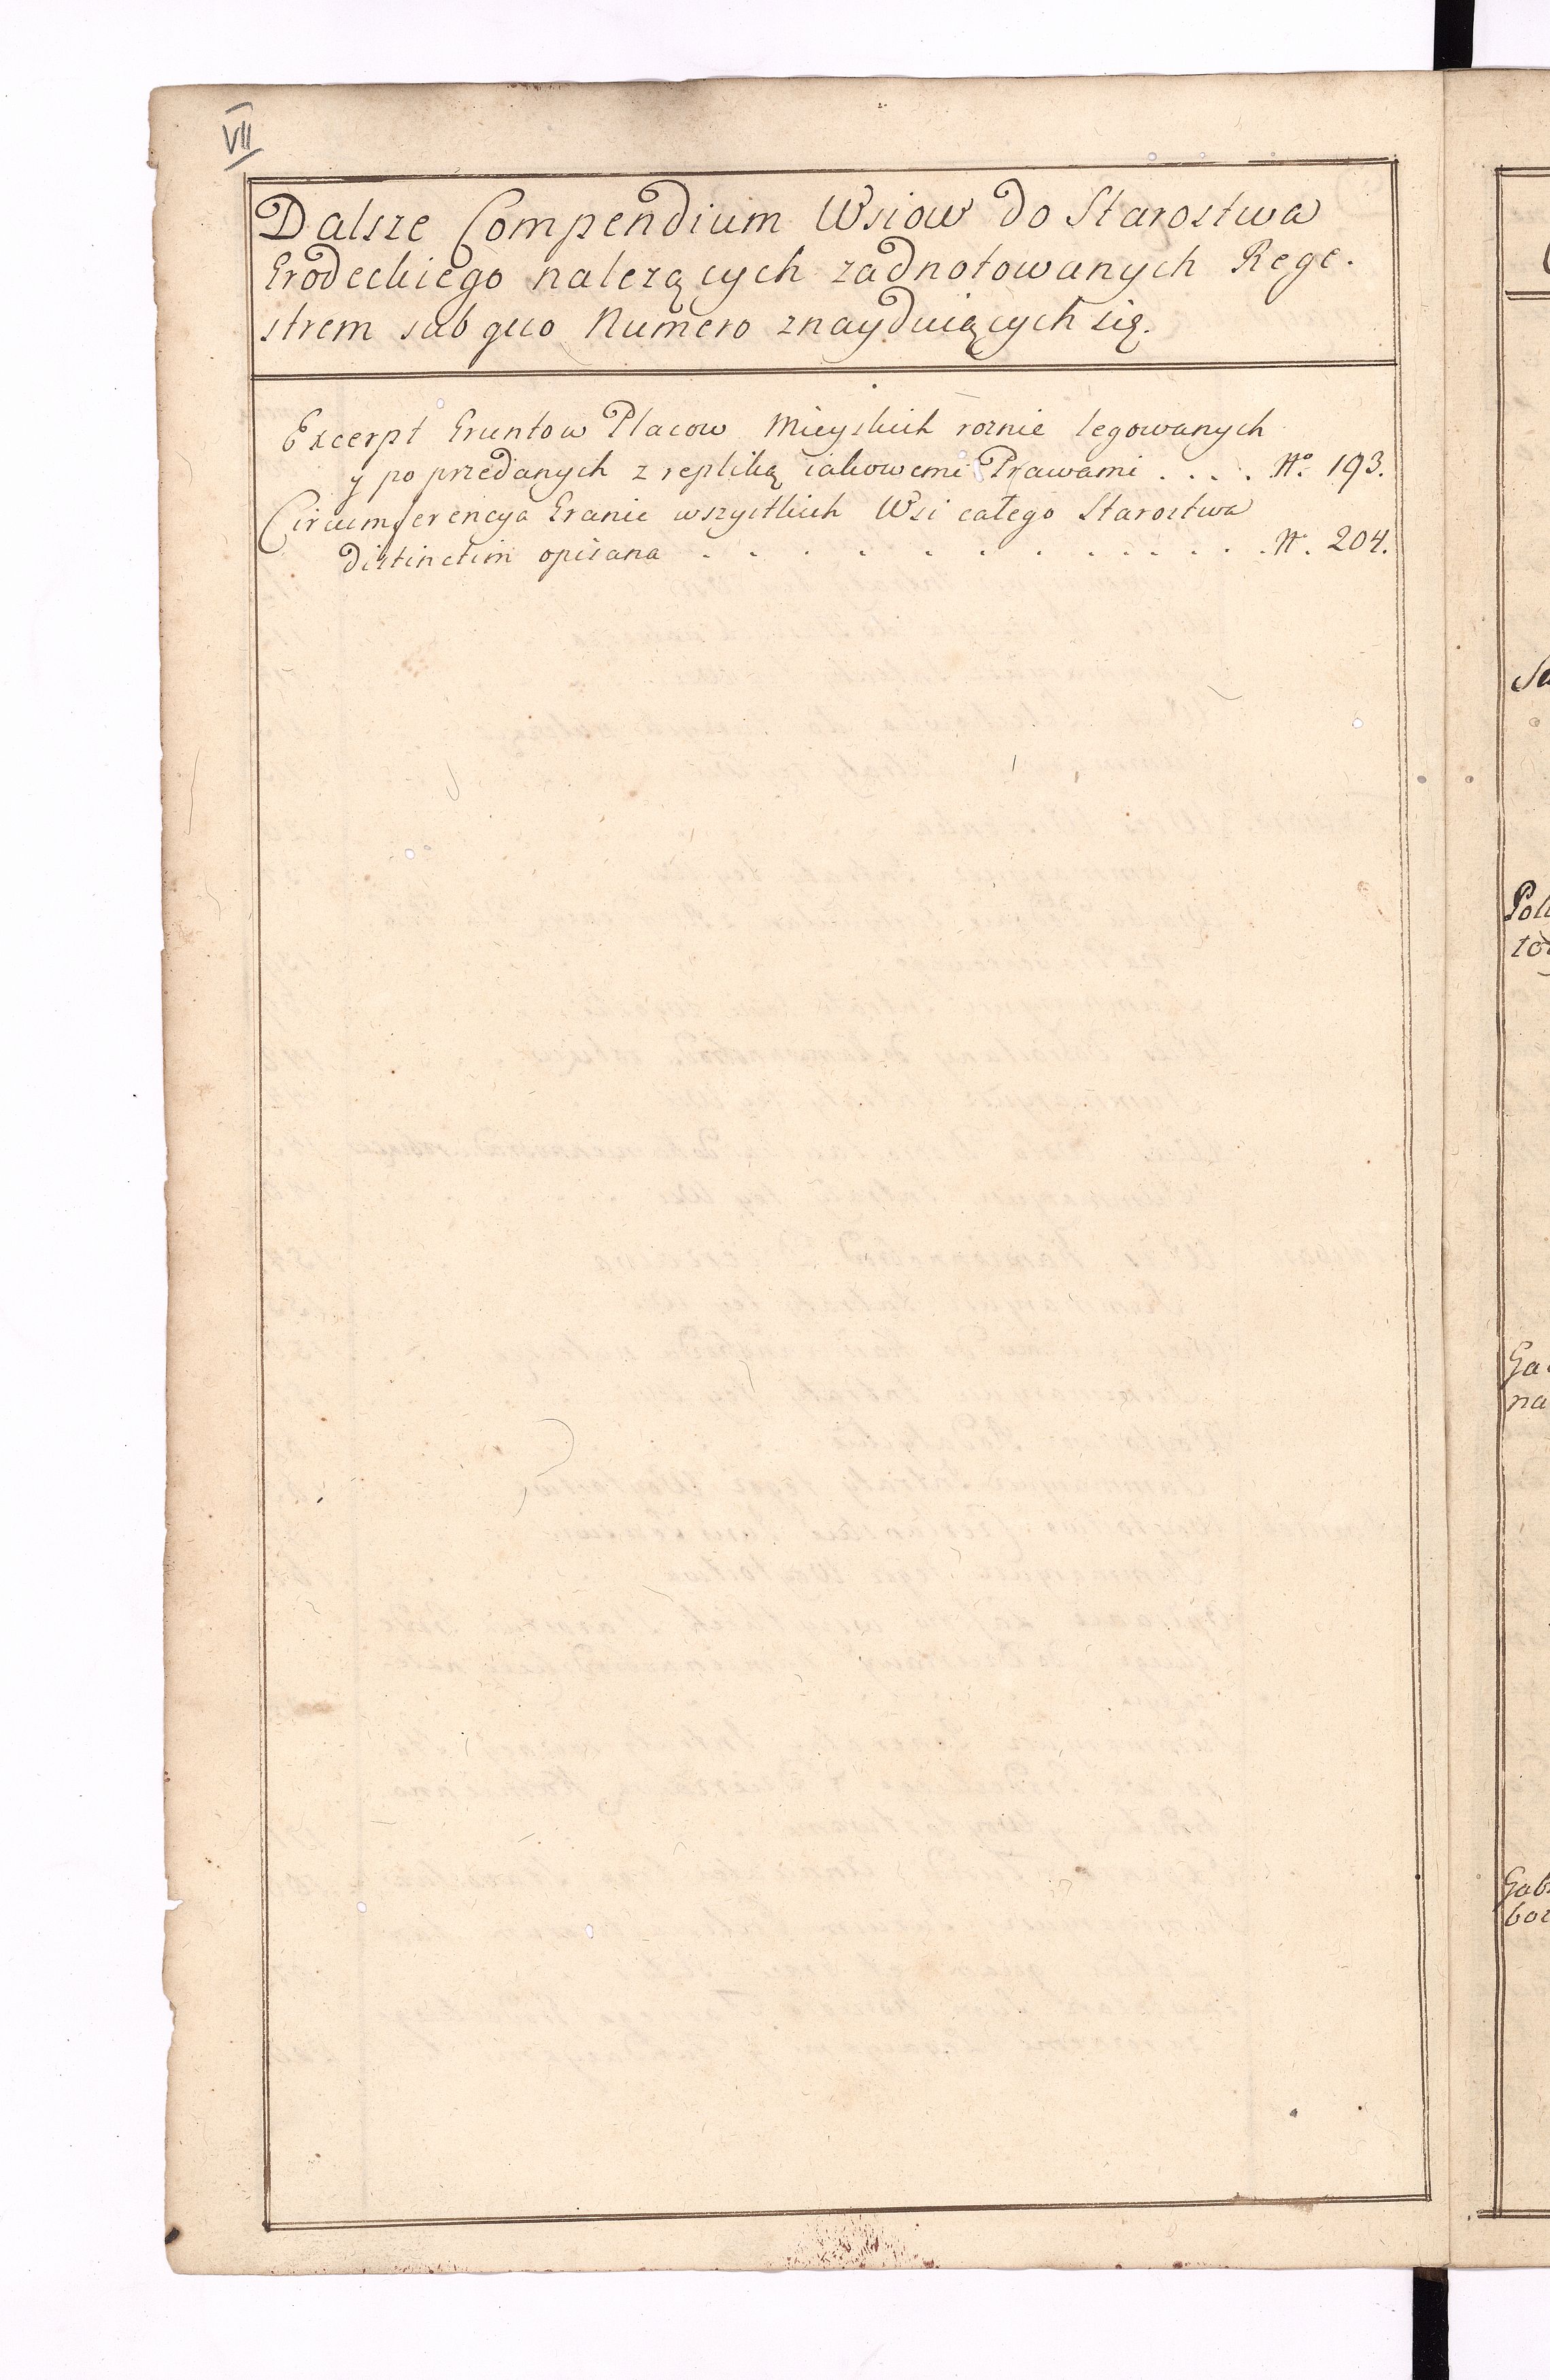 VII
Dalsze Compendium Wsiow do Starostwa
Grodeckiego należących zadnotowanych Rege-
strem sub quo Numero znayduiących się.
Excerpt Gruntow Placow Mieyskich roznie legowanych
y po przedanych z repliką iakowemi Prawami . . . . No. 193.
Circumferencya Granic wszystkich Wsi całego Starostwa
distinctim opisana . . . . . . . . . . . . N. 204.